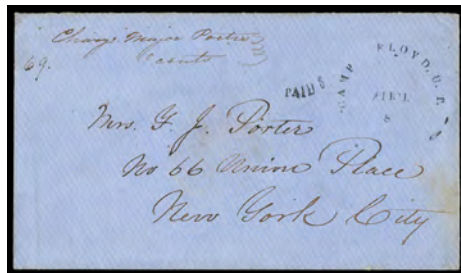 Charge Major Porter
69.
PAID
CAMP FLOYD. U. T.
APRIL
8
Mrs. F. J. Porter
No 66 Union Place
New York City